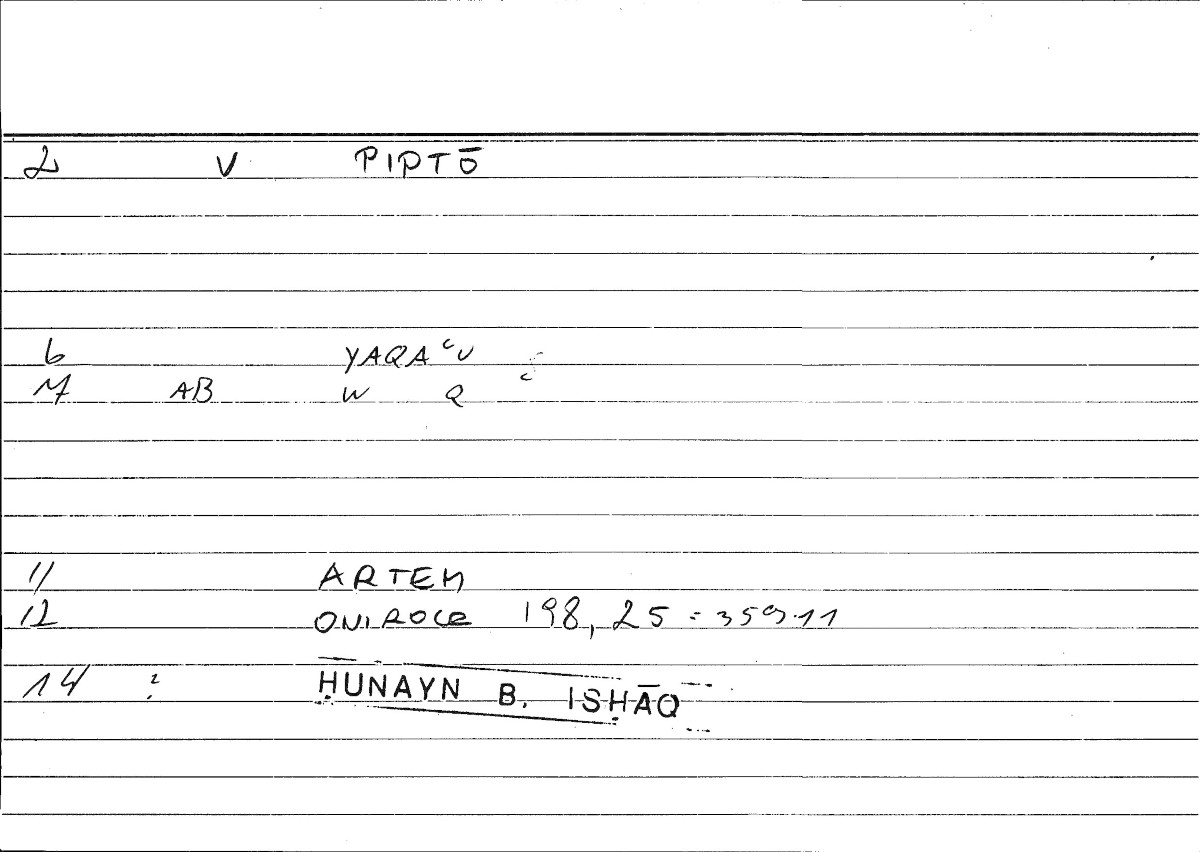 2 V PIPTŌ
6 YAQAʿU
7 AB W Q
11 ARTEM
12 ONIROCR 198, 25 = 359.11
14 ? ḤUNAYN B. ISḤĀQ